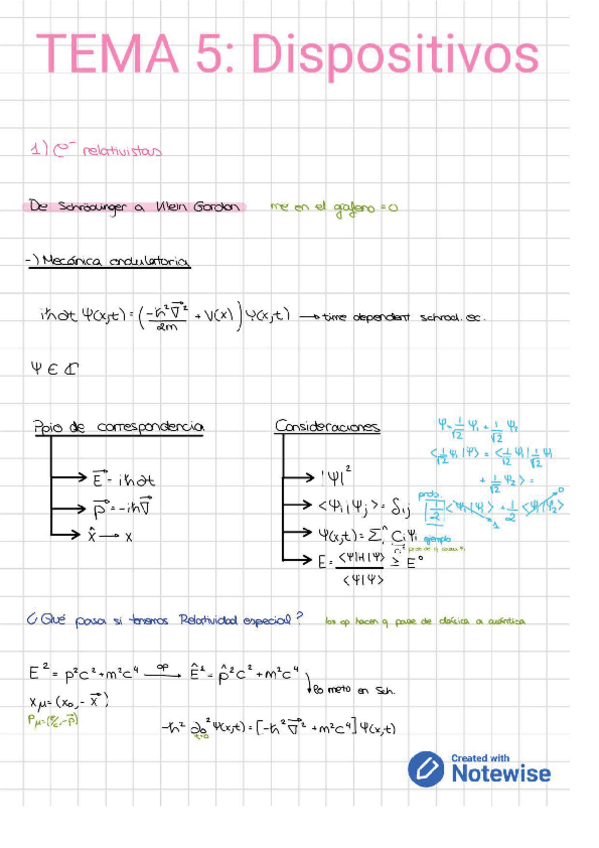 TEMA 5: Dispositivos
1) e⁻ relativistas
De Schrödinger a Klein Gordon me en el grafeno = 0
-) Mecánica ondulatoria
iℏ∂t Ψ(x,t) = (-ℏ²∇⃗²/2m + V(x)) Ψ(x,t) → time dependent schrod. ec.
Ψ ∈ ℂ
Ppio de correspondencia
E⃗ = iℏ∂t
p⃗ = -iℏ∇⃗
x̂ → x
Consideraciones
|Ψ|²
<Ψi|Ψj> = δij
Ψ(x,t) = Σᵢⁿ CᵢΨᵢ ejemplo
E = <Ψ|H|Ψ>/<Ψ|Ψ> ≥ E⁰
Ψ = 1/√2 Ψ₁ + 1/√2 Ψ₂
<1/√2 Ψ₁|Ψ> = <1/√2 Ψ₁|1/√2 Ψ₁
+ 1/√2 Ψ₂> =
prob.
1/2 <Ψ₁|Ψ₁> + 1/2 <Ψ₁|Ψ₂> 0
1
¿Qué pasa si tenemos Relatividad especial? los op hacen q pase de clásica a cuántica
E² = p²c² + m²c⁴ op → Ê² = p̂²c² + m²c⁴
Xμ = (x₀, -x⃗) lo meto en Sch.
Pμ = (E/c, -p⃗) -ℏ² ∂₀² Ψ(x,t) = [-ℏ²∇⃗² + m²c⁴] Ψ(x,t)
t=0
Created with
Notewise